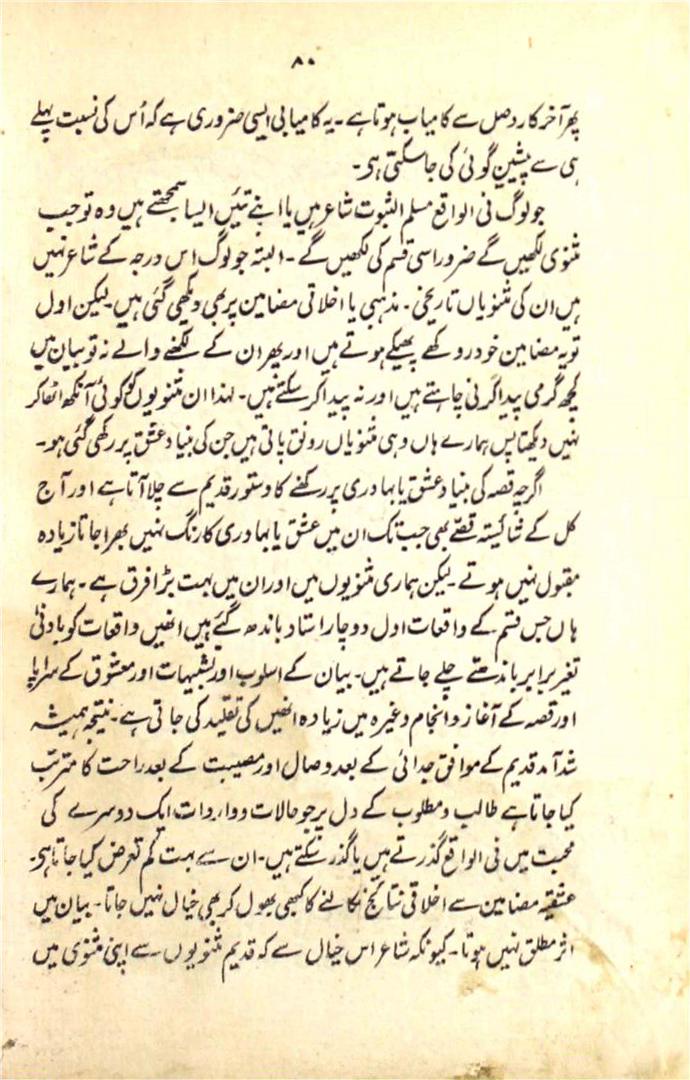 ۸۰
پھر آخر کار وصل سے کامیاب ہوتا ہے۔ یہ کامیابی ایسی ضروری ہے کہ اُس کی نسبت پہلے
ہی سے پیشین گوئی کی جا سکتی ہو۔
جو لوگ فی الواقع مسلم الثبوت شاعر ہیں یا اپنے تئیں ایسا سمجھتے ہیں وہ تو جب
مثنوی لکھیں گے ضرور اسی قسم کی لکھیں گے۔ البتہ جو لوگ اس درجہ کے شاعر نہیں
ہیں ان کی مثنویاں تاریخی۔ مذہبی یا اخلاقی مضامین پر بھی دیکھی گئی ہیں۔ لیکن اول
تو یہ مضامین خود روکھے پھیکے ہوتے ہیں اور پھر ان کے لکھنے والے نہ تو بیان میں
کچھ گرمی پیدا کرنی چاہتے ہیں اور نہ پیدا کر سکتے ہیں۔ لہذا ان مثنویوں کو کوئی آنکھ اٹھا کر
نہیں دیکھتا پس ہمارے ہاں وہی مثنویاں رونق پاتی ہیں جن کی بنیاد عشق پر رکھی گئی ہو۔
اگرچہ قصہ کی بنیاد عشق یا بہادری پر رکھنے کا دستور قدیم سے چلا آتا ہے اور آج
کل کے شائیستہ قصے بھی جب تک ان میں عشق یا بہادری کا رنگ نہیں بھرا جاتا زیادہ
مقبول نہیں ہوتے۔ لیکن ہماری مثنویوں میں اور ان میں بہت بڑا فرق ہے۔ ہمارے
ہاں جس قسم کے واقعات اول دو چار استاد باندھ گئے ہیں انھیں واقعات کو بادنیٰ
تغیر برابر باندھتے چلے جاتے ہیں۔ بیان کے اسلوب اور تشبیہات اور معشوق کے سراپا
اور قصہ کے آغاز و انجام وغیرہ میں زیادہ انھیں کی تقلید کی جاتی ہے۔ نتیجہ ہمیشہ
شد آمد قدیم کے موافق جدائی کے بعد وصال اور مصیبت کے بعد راحت کا مترتب
کیا جاتا ہے طالب و مطلوب کے دل پر جو حالات و واردات ایک دوسرے کی
محبت میں فی الواقع گذرتے ہیں یا گذر سکتے ہیں۔ ان سے بہت کم تعرض کیا جاتا ہو۔
عشقیہ مضامین سے اخلاقی نتائج نکالنے کا کبھی بھول کر بھی خیال نہیں جاتا۔ بیان میں
اثر مطلق نہیں ہوتا۔ کیونکہ شاعر اس خیال سے کہ قدیم مثنویوں سے اپنی مثنوی میں